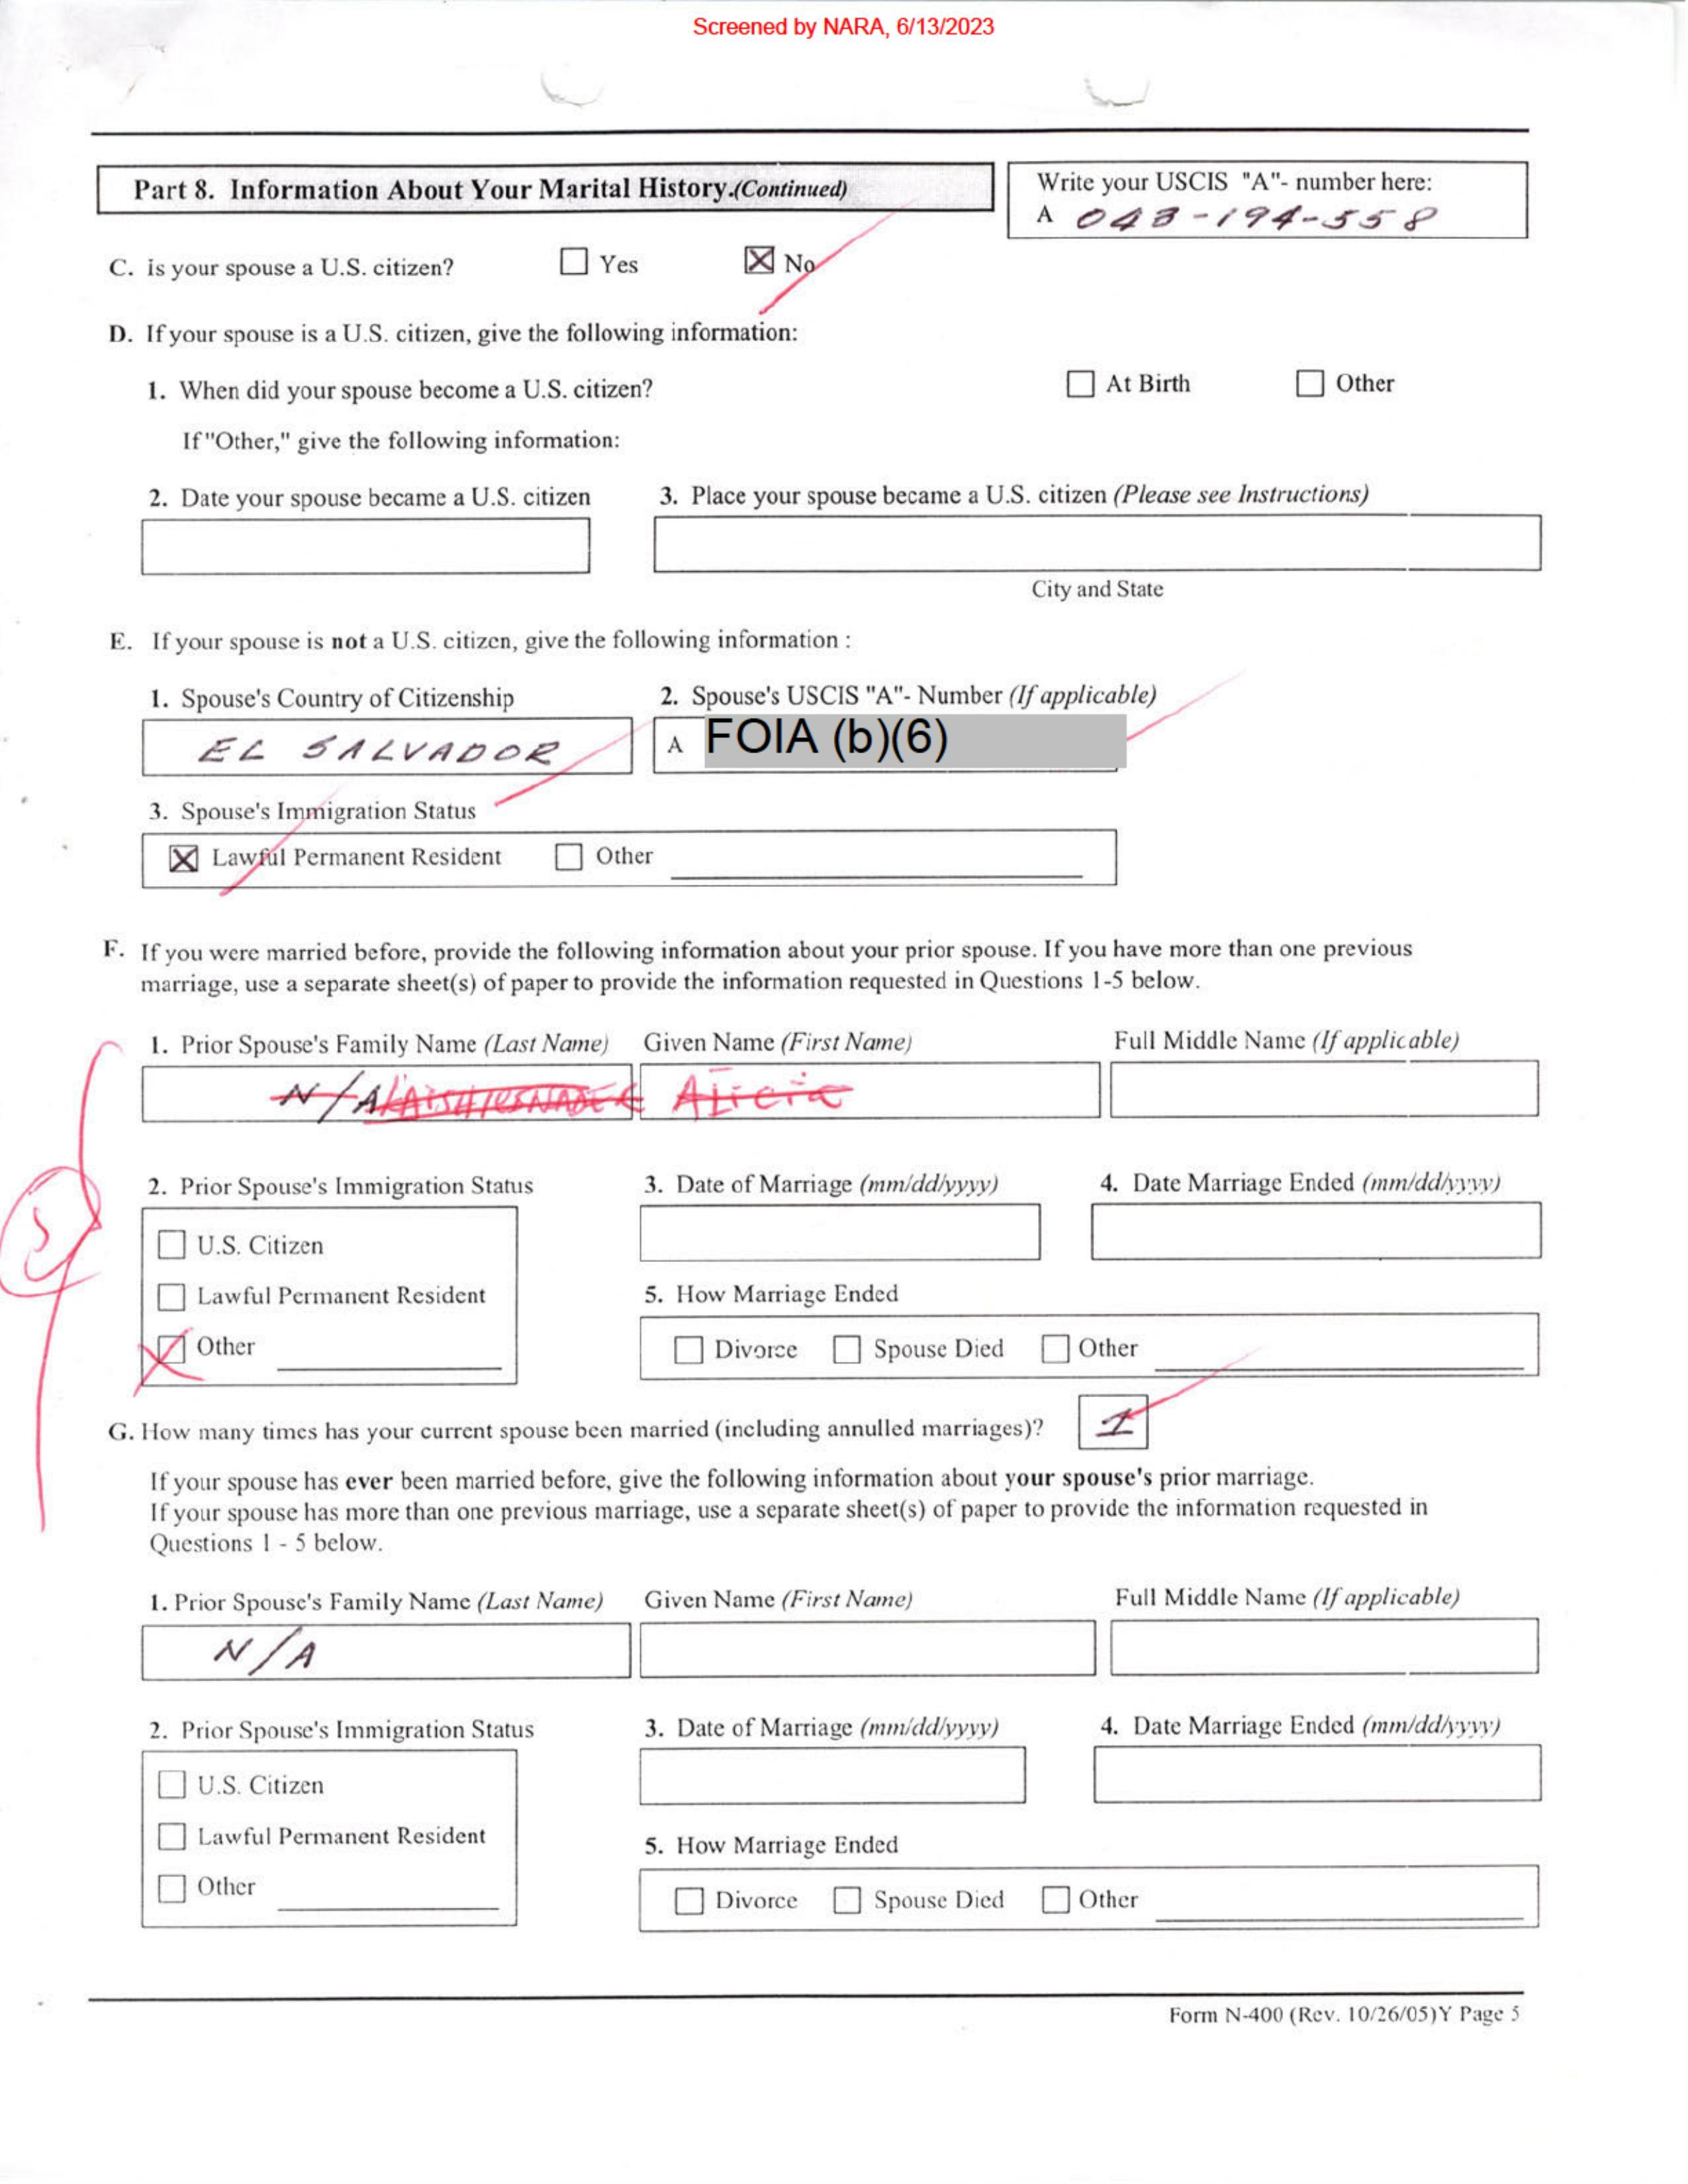 Screened by NARA, 6/13/2023
Part 8. Information About Your Marital History.(Continued)
Write your USCIS "A"- number here:
A 043-194-558
C. is your spouse a U.S. citizen? Yes No
D. If your spouse is a U.S. citizen, give the following information:
1. When did your spouse become a U.S. citizen? At Birth Other
If "Other," give the following information:
2. Date your spouse became a U.S. citizen 3. Place your spouse became a U.S. citizen (Please see Instructions)
City and State
E. If your spouse is not a U.S. citizen, give the following information :
1. Spouse's Country of Citizenship 2. Spouse's USCIS "A"- Number (If applicable)
EL SALVADOR A FOIA (b)(6)
3. Spouse's Immigration Status
Lawful Permanent Resident Other
F. If you were married before, provide the following information about your prior spouse. If you have more than one previous
marriage, use a separate sheet(s) of paper to provide the information requested in Questions 1-5 below.
1. Prior Spouse's Family Name (Last Name) Given Name (First Name) Full Middle Name (If applicable)
N/A Alicia
2. Prior Spouse's Immigration Status 3. Date of Marriage (mm/dd/yyyy) 4. Date Marriage Ended (mm/dd/yyyy)
U.S. Citizen
Lawful Permanent Resident 5. How Marriage Ended
Other Divorce Spouse Died Other
G. How many times has your current spouse been married (including annulled marriages)? 1
If your spouse has ever been married before, give the following information about your spouse's prior marriage.
If your spouse has more than one previous marriage, use a separate sheet(s) of paper to provide the information requested in
Questions 1 - 5 below.
1. Prior Spouse's Family Name (Last Name) Given Name (First Name) Full Middle Name (If applicable)
N/A
2. Prior Spouse's Immigration Status 3. Date of Marriage (mm/dd/yyyy) 4. Date Marriage Ended (mm/dd/yyyy)
U.S. Citizen
Lawful Permanent Resident 5. How Marriage Ended
Other Divorce Spouse Died Other
Form N-400 (Rev. 10/26/05)Y Page 5